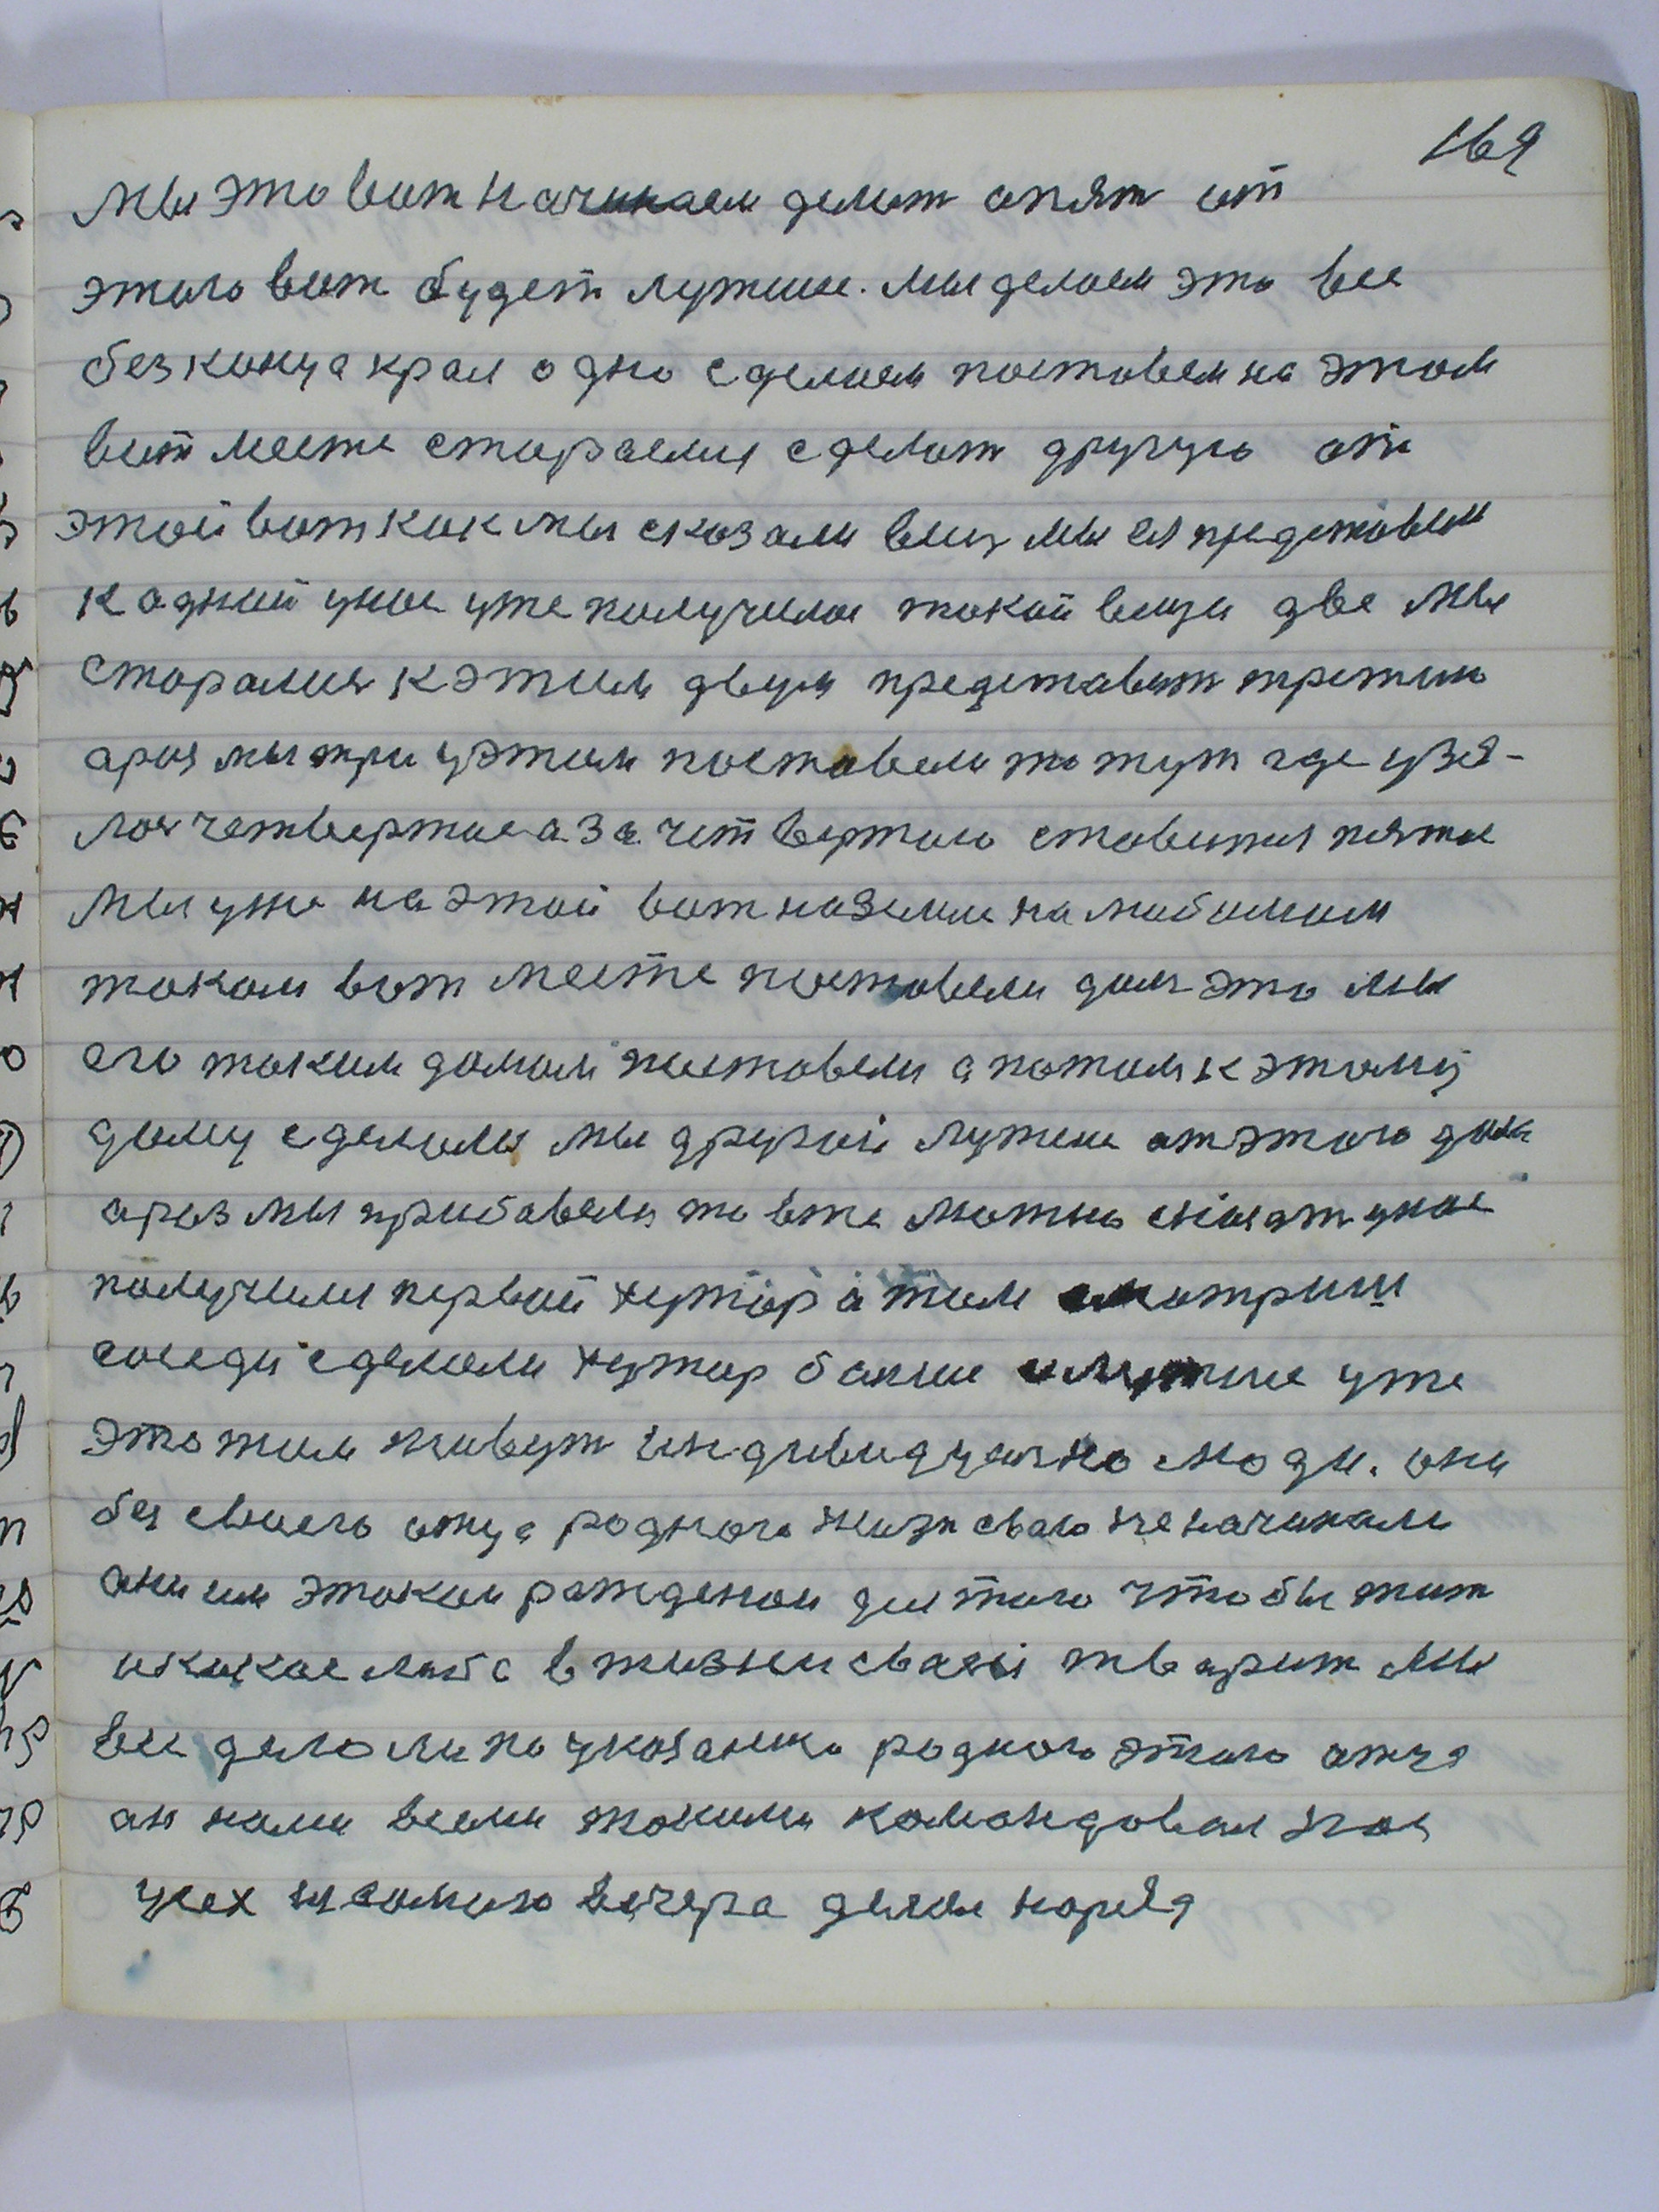 169
Мы это вот начинаем делат опят от
этого вот будет лутше. Мы делаем это все
без конца края одно сделаем поставем на этом
вот месте стараемся сделат другую от
этой вот как мы сказали вещ мы ея представем
к адной унас уже получилос такой вещи две Мы
старалися к этим двум представит третию
араз мы три у этом поставели то тут где узя-
лос четвертое а за четвертого ставится пятое
Мы уже на этой вот на земле на любимом
таком вот месте поставели дом это мы
его таким домом поставели а потом к этому
дому сделали мы другой лутше от этого дома
араз мы прибавели то вже можно сказат унас
получился первой хутор а там смотриш
соседи сделали хутор болше и лутше уже
это там живут индивидуално люди. они
без своего отца родного жизн сваю неначинали
они им этаким рожденои для того чтобы жит
и какое либо в жизни сваей творит Мы
все делали по указанию родного этого отца
ан нами всеми такими командовал нас
усех из самого вечера делал наряд